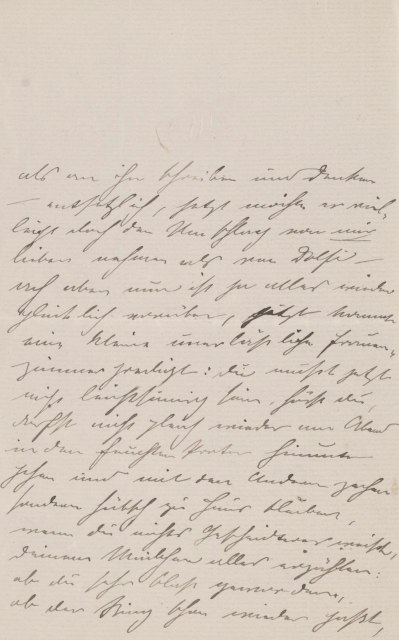 als an ihn schreiben und denken
– entsetzlich, jetzt möchte er viel-
leicht doch den Umschlag von mir
lieber nehmen als von Dolfi –
ach aber nun ist ja alles wieder
glücklich vorüber, jetzt kommt
eine kleine unerläßliche Frauen-
zimmerpredigt: du mußt jetzt
nicht leichtsinnig sein, hörst du,
darfst nicht gleich wieder am Abend
in den feuchten Prater hinunter
gehen und mit den Andern zechen
sondern hübsch zu Haus bleiben,
wenn du nichts Gescheidteres weißt,
deinem alles erzählen:
ob du sehr blaß geworden,
ob der Ring schon wieder paßt,